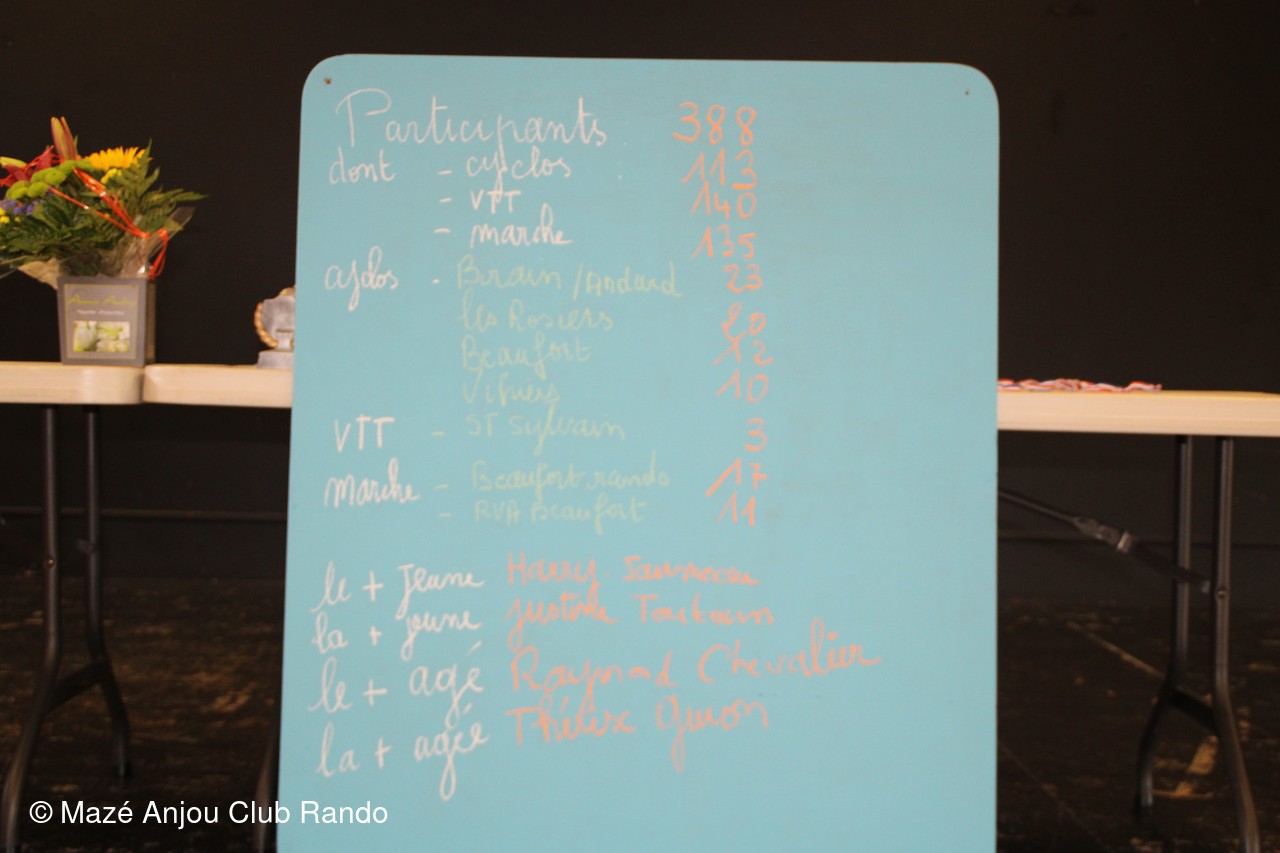 Participants 388
dont - cyclos 113
- VTT 140
- marche 135
cyclos - Brain / Andard 23
les Rosiers 20
Beaufort 12
Vihiers 10
VTT - ST Sylvain 3
marche - Beaufort rando 17
- RVA Beaufort 11
le + jeune Harry
la + jeune justine
le + agé Raymond Chevalier
la + agée Thérèse Guion
© Mazé Anjou Club Rando